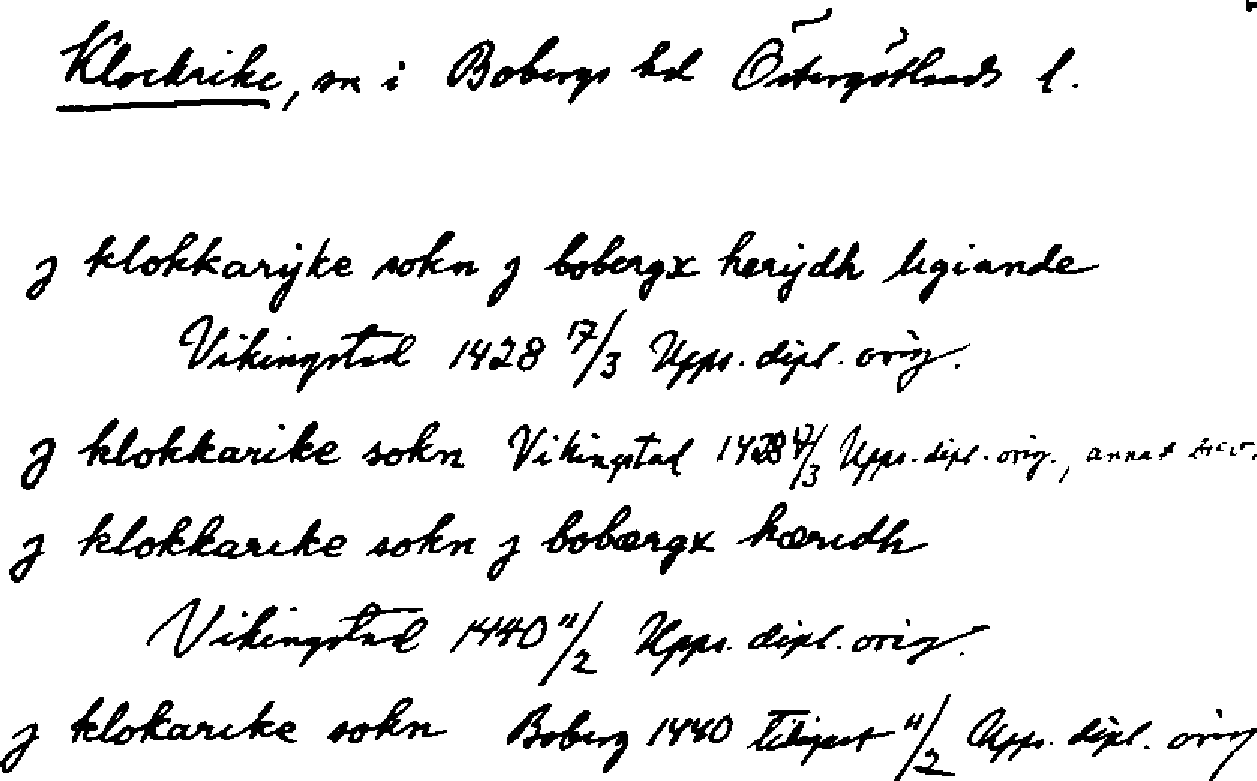 Klockrike, sn i Bobergs hd Östergötlands l.
j klokkarijke sokn j bobergx herijdh ligiande
Vikingstad 1428 17/3 Upps. dipl. orig.
j klokkarike sokn Vikingstad 1428 17/3 Upps. dipl. orig., annat brev.
j klokkarike sokn j bobærgx hæridh
Vikingstad 1440 11/2 Upps. dipl. orig.
j klokarike sokn Boberg 1440 11/2 Upps. dipl. orig